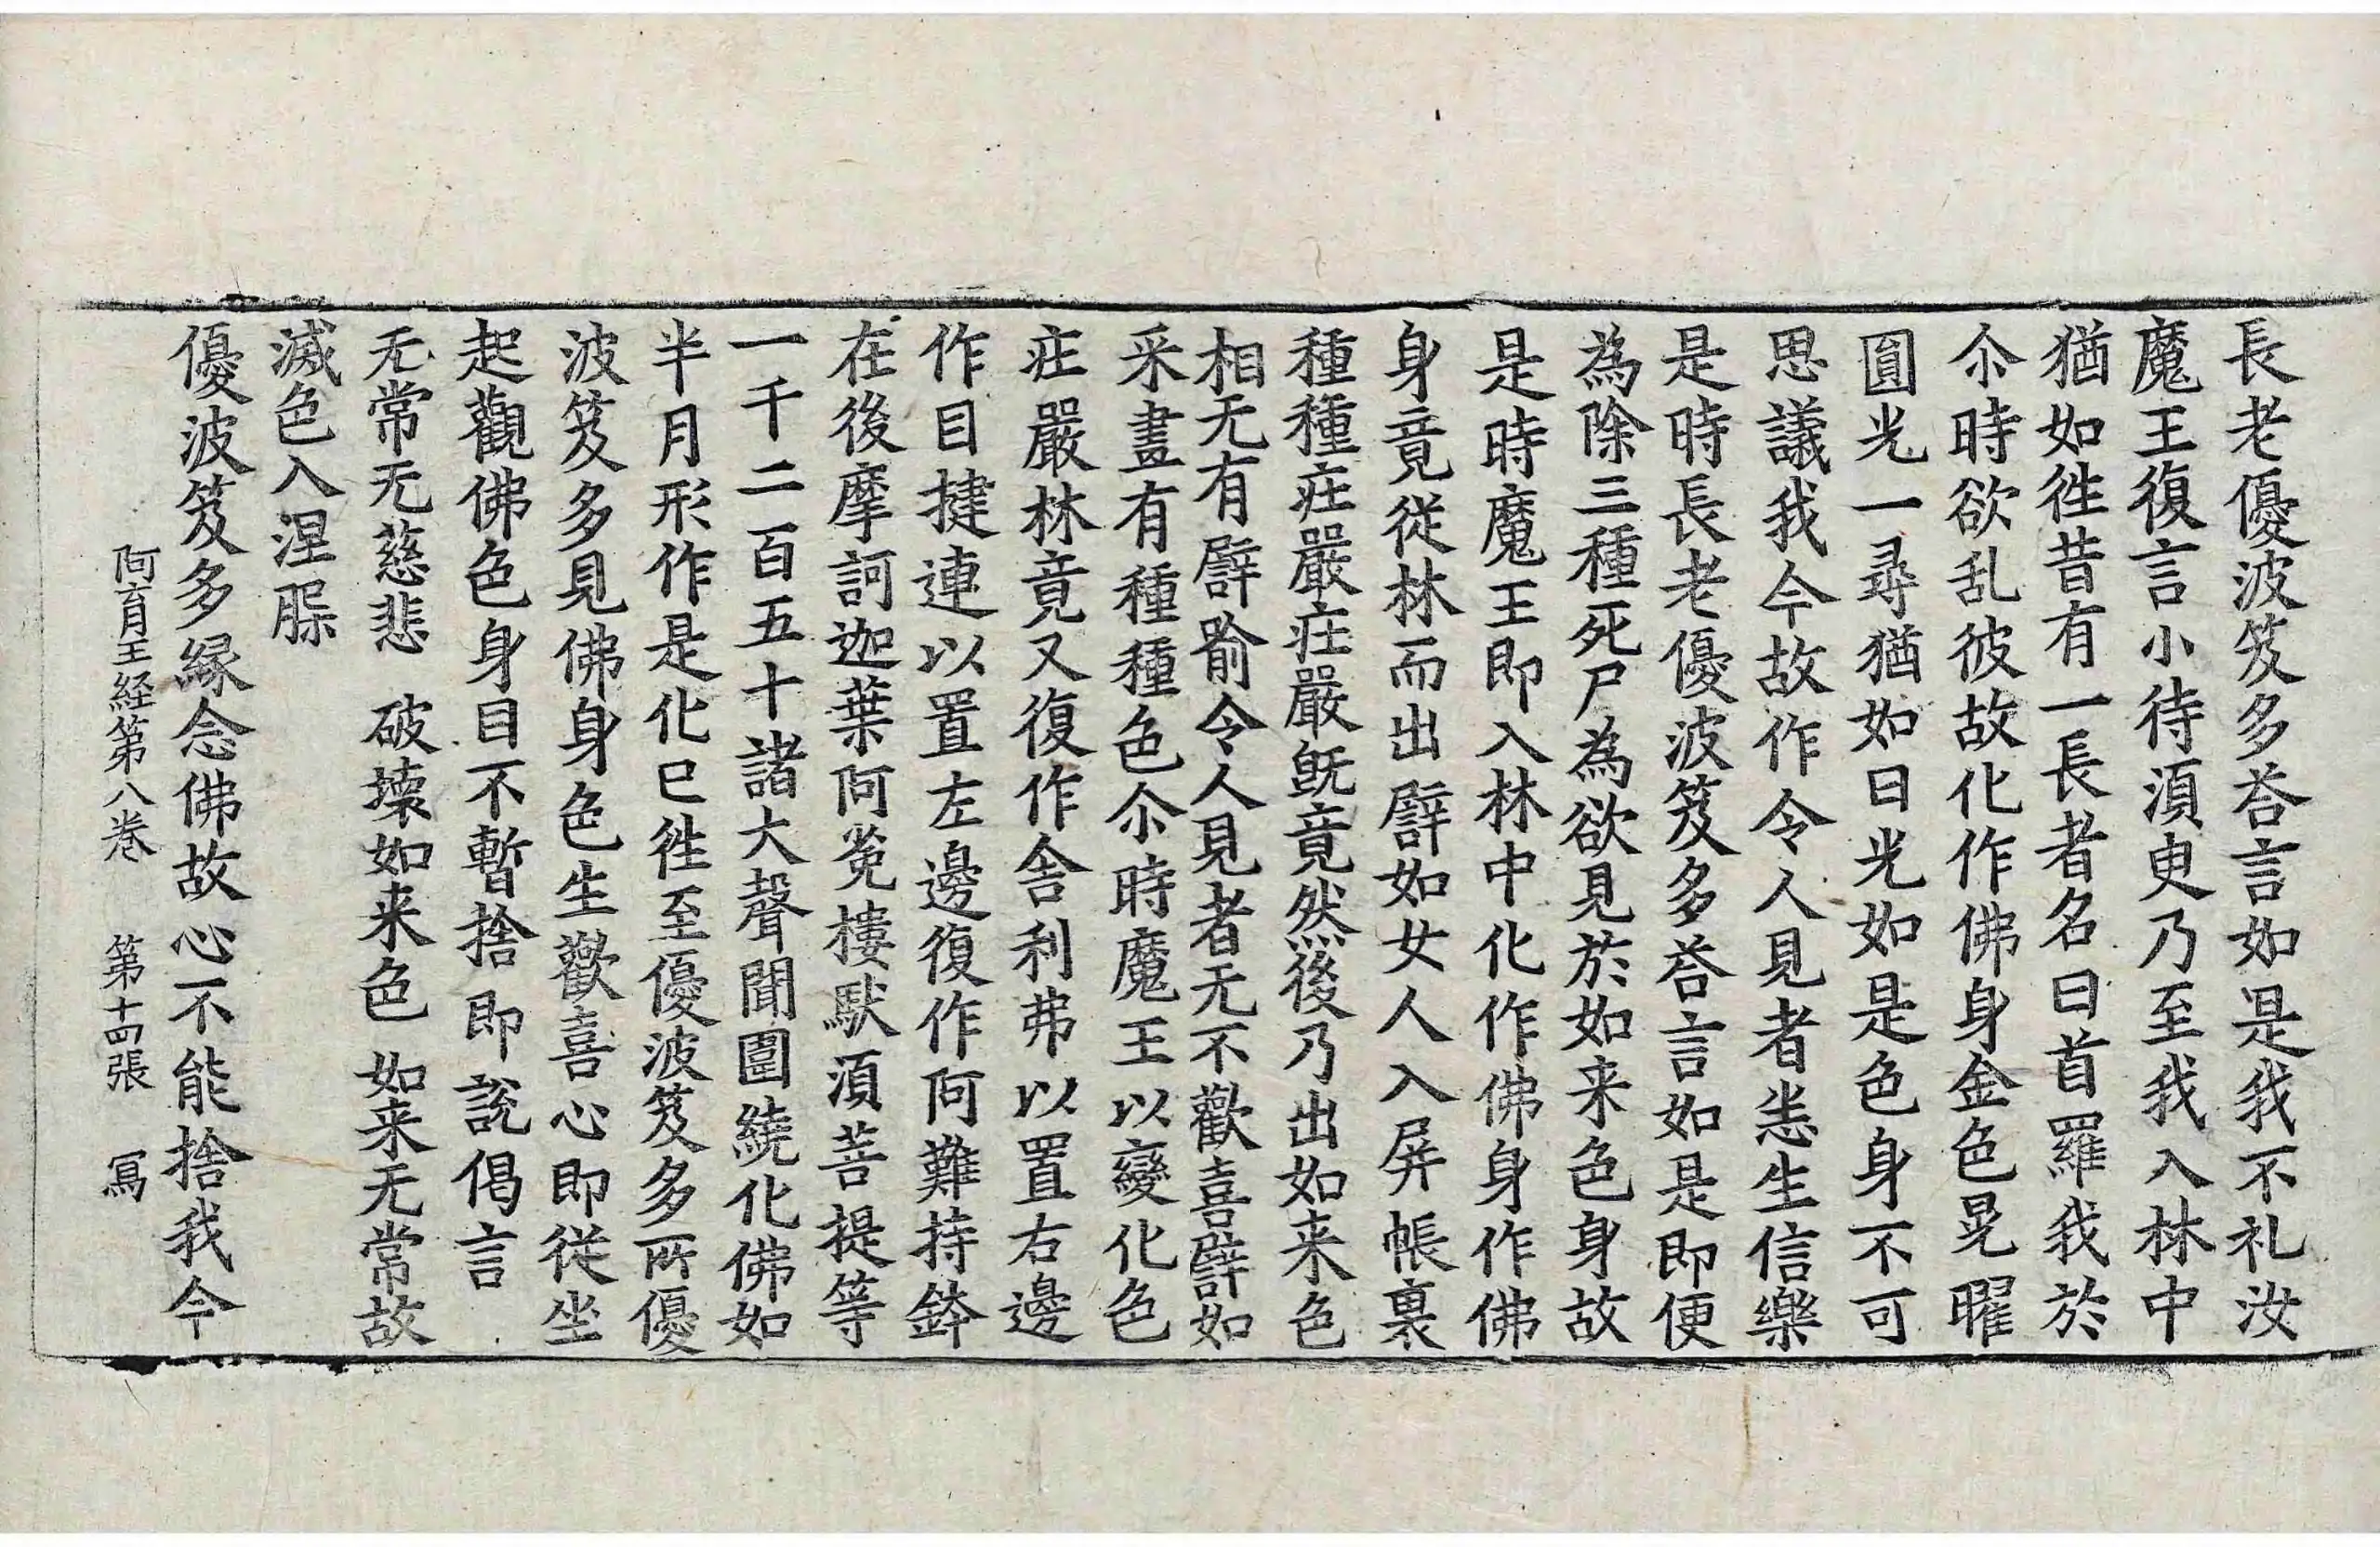 長老優波笈多荅言如是我不礼汝
魔王復言小待湏㬰乃至我入林中
猶如徃昔有一長者名曰首羅我於
尒時欲乱彼故化作佛身金色晃曜
圓光一尋猶如日光如是色身不可
思議我今故作令人見者恙生信樂
是時長老優波笈多荅言如是即便
為除三種死尸為欲見於如来色身故
是時魔王即入林中化作佛身作佛
身竟從林而出譬如女人入屏帳裏
種種㽵嚴㽵嚴既竟然後乃出如来色
相无有譬喻令人見者无不歡喜譬如
采畫有種種色尒時魔王以變化色
㽵嚴林竟又復作舎利弗以置右邊
作目揵連以置左邊復作阿難持鉢
在後摩訶迦葉阿㝹樓馱湏菩提等
一千二百五十諸大聲聞圍繞化佛如
半月形作是化已徃至優波笈多所優
波笈多見佛身色生歡喜心即從坐
起觀佛色身目不暫捨 即說偈言
无常无慈悲 破壞如来色 如来无常故
滅色入涅脲
優波笈多縁念佛故心不能捨我今
阿育王経第八巻 第十四張 寫